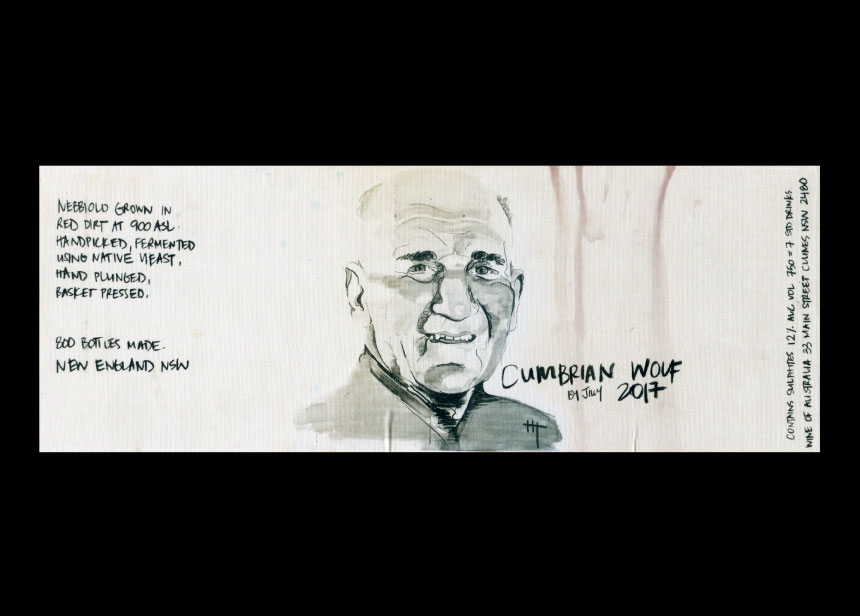 NEBBIOLO GROWN IN
RED DIRT AT 900 ASL.
HANDPICKED, FERMENTED
USING NATIVE YEAST,
HAND PLUNGED,
BASKET PRESSED.
800 BOTTLES MADE.
NEW ENGLAND NSW
CUMBRIAN WOLF
BY JILLY 2017
CONTAINS SULPHITES 12% ALC VOL 750 = 7 STD DRINKS
WINE OF AUSTRALIA 33 MAIN STREET CLUNES NSW 2480